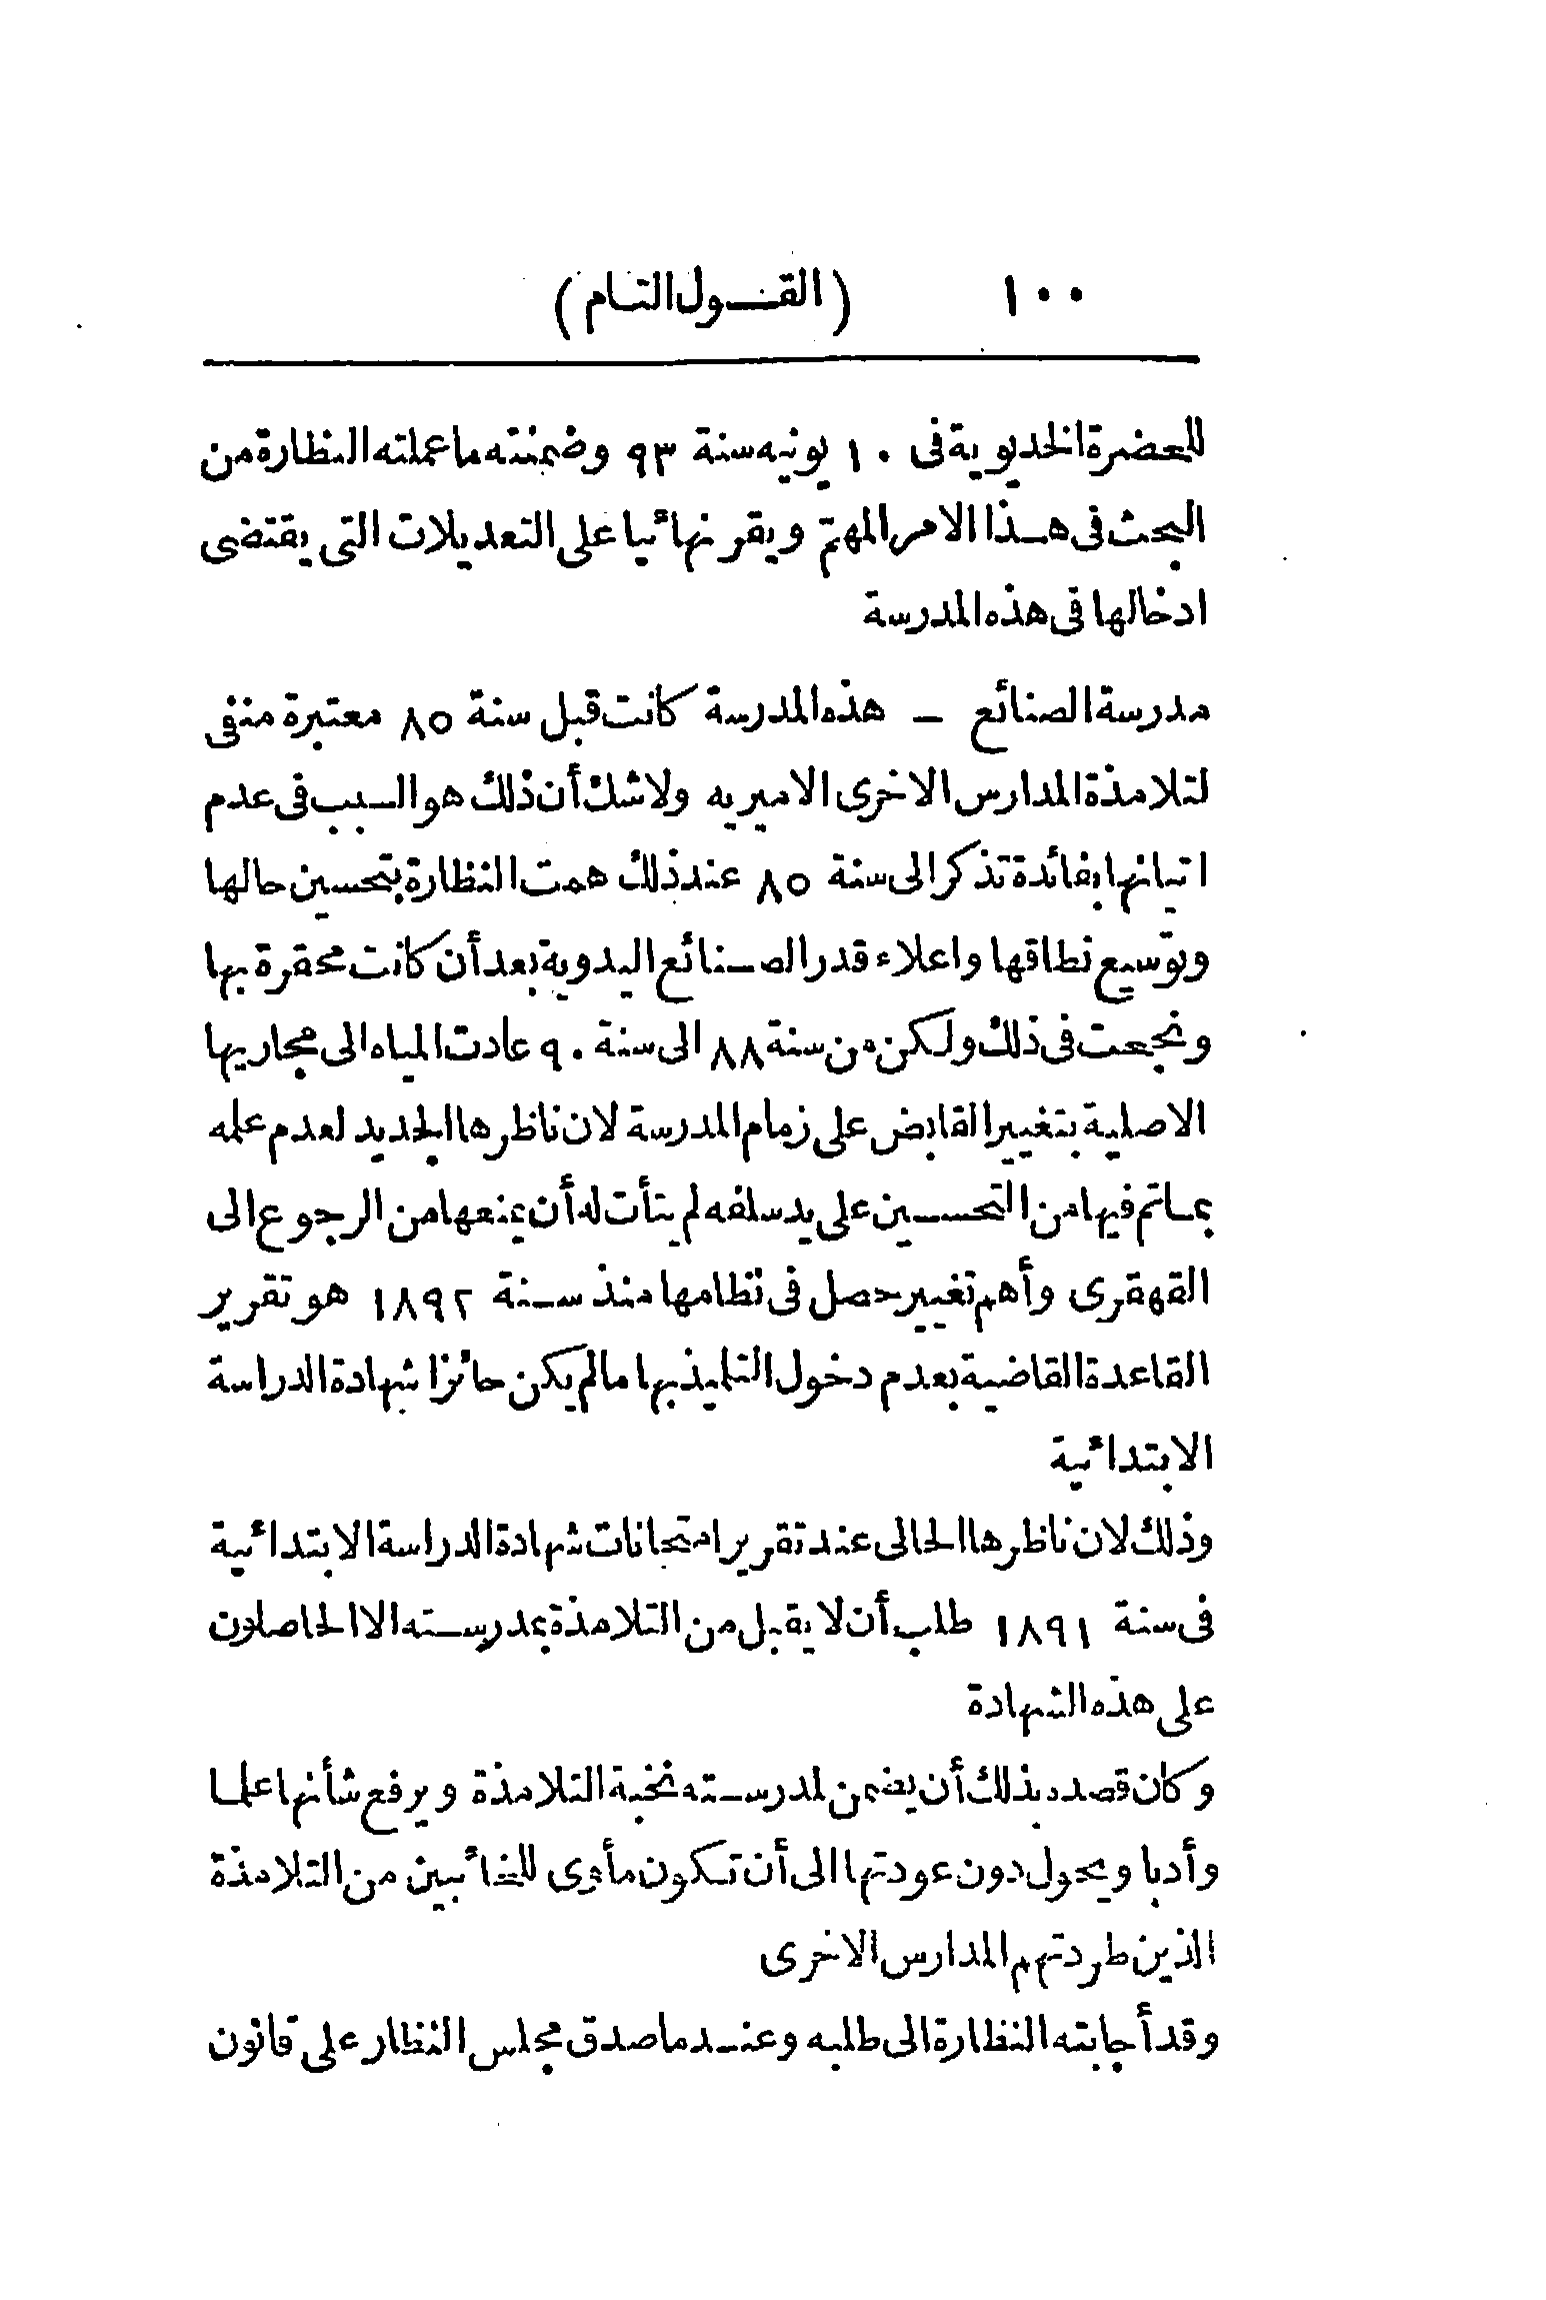 ١٠٠ (القول التام)
للحضرة الخديوية فى ١٠ يونيه سنة ٩٣ وضمنته ما عملته النظارة من
البحث فى هذا الامر المهتم ويقر نهائيا على التعديلات التى يقتضى
ادخالها فى هذه المدرسة
مدرسة الصنائع — هذه المدرسة كانت قبل سنة ٨٥ معتبرة منفى
لتلامذة المدارس الاخرى الاميريه ولاشك أن ذلك هو السبب فى عدم
اتيانها بفائدة تذكر الى سنة ٨٥ عند ذلك همت النظارة بتحسين حالها
وتوسيع نطاقها واعلاء قدر الصنائع اليدوية بعد أن كانت محقرة بها
ونجحت فى ذلك ولكن من سنة ٨٨ الى سنة ٩٠ عادت المياه الى مجاريها
الاصلية بتغيير القابض على زمام المدرسة لان ناظرها الجديد لعدم علمه
بما تم فيها من التحسين على يد سلفه لم يتأت له أن يمنعها من الرجوع الى
القهقرى وأهم تغيير حصل فى نظامها منذ سنة ١٨٩٢ هو تقرير
القاعدة القاضية بعدم دخول التلميذ بها مالم يكن حائزا شهادة الدراسة
الابتدائية
وذلك لان ناظرها الحالى عند تقرير امتحانات شهادة الدراسة الابتدائية
فى سنة ١٨٩١ طلب أن لا يقبل من التلامذة بمدرسته الا الحاصلون
على هذه الشهادة
وكان قصده بذلك أن يضمن لمدرسته نخبة التلامذة ويرفع شأنها علما
وأدبا ويحول دون عودتها الى أن تكون مأوى للخائبين من التلامذة
الذين طردتهم المدارس الاخرى
وقد أجابته النظارة الى طلبه وعند ما صدق مجلس النظار على قانون